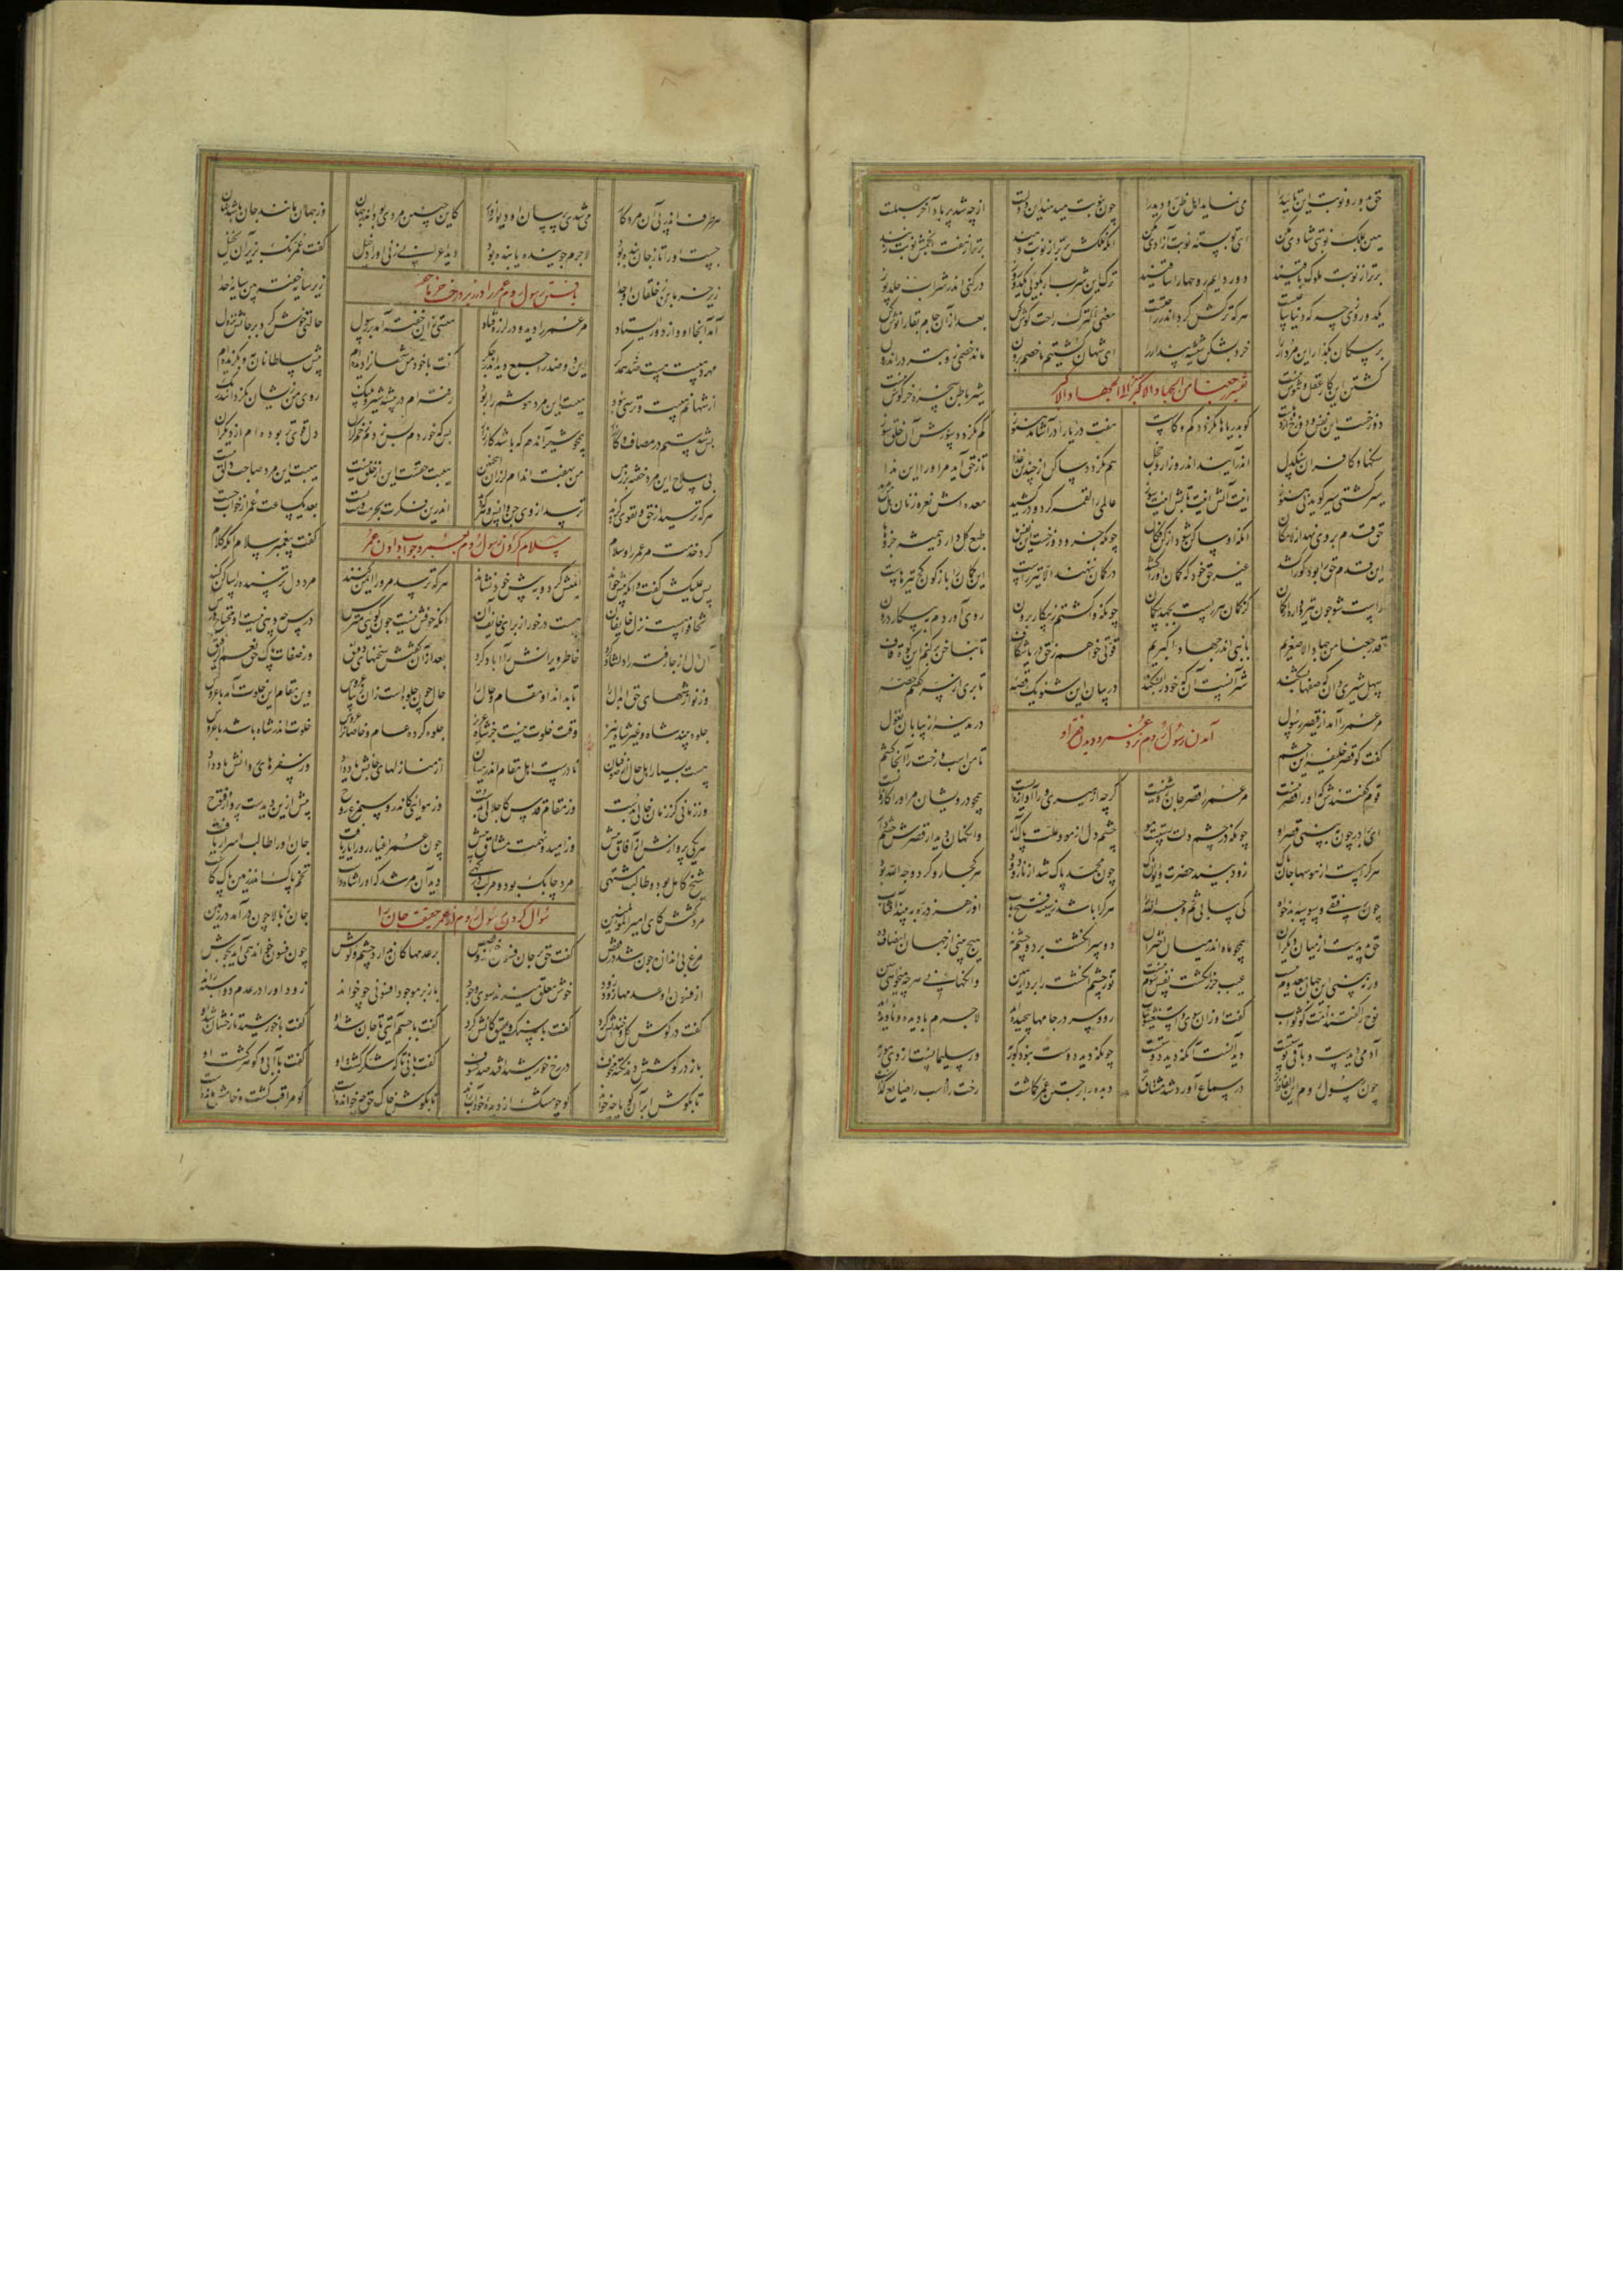 حق بدور و نوبت این تایید را می نماید اهل ظن و دید را چون بنوبت میدهند این دولتت از چه شد پر باد آخر سبلتت
هین بملک نوبتی شادی مکن ای تو بسته نوبت آزادی مکن آنکه ملکش برتر از نوبت تنند برتر از هفت انجمش نوبت زنند
برتر از نوبت ملوک باقیند دور دایم روحها را ساقیند ترک این شرب ار بگویی یکدو روز درکنی اندر شراب خلد پوز
یکدو روزی چه که دنیا ساعتست هر که ترکش کرد اندر راحتست معنی الترک راحت گوش کن بعد از آن جام بقا را نوش کن
بر سگان بگذار این مردار را خرد بشکن شیشه پندار را ای شهان کشتیم ما خصم برون ماند خصمی زو بتر در اندرون
کشتن این کار عقل و هوش نیست شیر باطن سخره خرگوش نیست
تفسیر رجعنا من الجهاد الاصغر الی الجهاد الاکبر
دوزخست این نفس و دوزخ اژدهاست کو بدریاها نگردد کم و کاست هفت دریا را در آشامد هنوز کم نگردد سوزش آن خلق سوز
سنگها و کافران سنگ دل اندر آیند اندر و زار و خجل هم نگردد ساکن از چندین غذا تا ز حق آید مر او را این ندا
سیر گشتی سیر گوید نی هنوز اینت آتش اینت تابش اینت سوز عالمی را لقمه کرد و در کشید معده اش نعره زنان هل من مزید
حق قدم بر وی نهد از لامکان آنگه او ساکن شود از کن فکان چونکه جزو دوزخست این نفس ما طبع کل دارد همیشه جزوها
این قدم حق را بود کو را کشد غیر حق خود که کمان او را کشد در کمان ننهند الا تیر راست این کمان را بازگون کژ تیرهاست
راست شو چون تیر و واره از کمان کز کمان هر راست بجهد بیگمان چونکه واگشتم ز پیکار برون روی آوردم بپیکار درون
قد رجعنا من جهاد الاصغریم با نبی اندر جهاد اکبریم قوتی خواهم ز حق دریا شکاف تا بناخن بر کنم این کوه قاف
سهل شیری دان که صفها بشکند شیر آنست آن که خود را بشکند در بیان این شنو یک قصه تا بری از سر گفتم حصه
مر عمر را آمد از قیصر رسول در مدینه از بیابان نغول
آمدن رسول روم نزد عمر و دیدن او
گفت کو قصر خلیفه ای حشم تا من اسب و رخت را آنجا کشم
قوم گفتندش که او را قصر نیست مر عمر را قصر جان روشنیست گرچه از میری ورا آوازه ایست همچو درویشان مر او را کازه ایست
ای برادر چون ببینی قصر او چونکه در چشم دلت رستست مو چشم دل از مو و علت پاک آر وانگهان دیدار قصرش چشم دار
هر کراهست از هوسها جان پاک زود بیند حضرت و ایوان پاک چون محمد پاک شد از نار و دود هر کجا رو کرد وجه الله بود
چون رفیقی وسوسه بدخواه را کی بدانی ثم وجه الله را هر کرا باشد ز سینه فتح باب او ز هر ذره ببیند آفتاب
حق پدیدست از میان دیگران همچو ماه اندر میان اختران دو سر انگشت بر دو چشم نه هیچ بینی از جهان انصاف ده
ور نبینی این جهان معدوم نیست عیب جز ز انگشت نفس شوم نیست تو ز چشم انگشت را بردار هین وانگهانی هر چه میخواهی ببین
نوح را گفتند امت کو ثواب گفت او زان سوی استغشوا ثیاب رو و سر در جامها پیچیده اند لاجرم با دیده و نادیده اند
آدمی دیدست و باقی پوستست دید آنست آنکه دید دوستست چونکه دید دوست نبود کور به ور سلیمانست از وی مور به
چون رسول روم این الفاظ تر در سماع آورد شد مشتاق تر دیده را بر جستن عمر گماشت رخت را و اسب را ضایع گذاشت
هر طرف اندر پی آن مرد کار می شدی پرسان او دیوانه وار کاین چنین مردی بود اندر جهان وز جهان مانند جان باشد نهان
جست او را تاش چون بنده بود لاجرم جوینده یابنده بود دید اعرابی زنی او را دخیل گفت عمر نک بزیر آن نخیل
زیر خرمابن ز خلقان او جدا زیر سایه خفته بین سایه خدا
یافتن رسول روم عمر را در زیر درخت خرما
آمد آنجا او و از دور ایستاد مر عمر را دید و در لرزه فتاد هیبتی زان خفته آمد بر رسول حالتی خوش کرد بر جانش نزول
مهر و هیبت هست ضد همدگر این دو ضد را جمع دید اندر جگر گفت با خود من شهان را دیده ام پیش سلطانان مه و بگزیده ام
از شهانم هیبت و ترسی نبود هیبت این مرد هوشم را ربود رفته ام در بیشه شیر و پلنگ روی من زیشان نگردانید رنگ
بس شدستم در مصاف و کارزار همچو شیر آن دم که باشد کار زار بس که خوردم بس زدم زخم گران دل قوی تر بوده ام از دیگران
بی سلاح این مرد خفته بر زمین من بهفت اندام لرزان چیست این هیبت حقست این از خلق نیست هیبت این مرد صاحب دلق نیست
هر که ترسید از حق و تقوی گزید ترسد از وی جن و انس و هر که دید اندرین فکرت بحرمت دست بست بعد یکساعت عمر از خواب جست
کرد خدمت مر عمر را و سلام گفت پیغمبر سلام آنگه کلام
سلام کردن رسول روم بر عمر و جواب دادن عمر
پس علیکش گفت و او را پیش خواند ایمنش کرد و بپیش خود نشاند هر که ترسد مر ورا ایمن کنند مرد دل ترسنده را ساکن کنند
لاتخافوا هست نزل خایفان هست در خور از برای خایف آن آنکه خوفش نیست چون گویی مترس درس چه دهی نیست او محتاج درس
آن دل از جا رفته را دلشاد کرد خاطر ویرانش را آباد کرد بعد از آن گفتش سخنهای دقیق وز صفات پاک حق نعم الرفیق
وز نوازشهای حق ابدال را تا بداند او مقام و حال را حال چون جلوه است زان زیبا عروس وین مقام این خلوت آمد با عروس
جلوه بیند شاه و غیر شاه نیز وقت خلوت نیست جز شاه عزیز جلوه کرده عام و خاصانرا عروس خلوت اندر شاه باشد با عروس
هست بسیار اهل حال از صوفیان نادرست اهل مقام اندر میان از منازلهای جانش یاد داد وز سفرهای روانش یاد داد
وز زمانی کز زمان خالی بدست وز مقام قدس که اجلالی بدست وز هوایی کاندرو سیمرغ روح پیش ازین دیدست پرواز و فتوح
هر یکی پروازش از آفاق بیش وز امید و نهمت مشتاق بیش چون عمر اغیار رو را یار یافت جان او را طالب اسرار یافت
شیخ کامل بود و طالب مشتهی مرد چابک بود و مرکب درگهی دید آن مرشد که او ارشاد داشت تخم پاک اندر زمین پاک کاشت
مرد گفتش کای امیر المومنین جان ز بالا چون در آمد در زمین
سوال کردن رسول روم از عمر حقیقت جان را
مرغ بی اندازه چون شد در قفص گفت حق بر جان فسون خواند و قصص بر عدمها کان ندارد چشم و گوش چون فسون خواند همی آید بجوش
از فسون او عدمها زود زود خوش معلق میزند سوی وجود باز بر موجود افسونی چو خواند زود او را در عدم دو اسبه راند
گفت در گوش گل و خندانش کرد گفت با سنگ و عقیق کانش کرد گفت با جسم آیتی تا جان شد او گفت با خورشید تا رخشان شد او
باز در گوشش دمد نکته مخوف در رخ خورشید افتد صد کسوف گفت با نی تا که شکر گشت او گفت با آبی و گوهر گشت او
تا بگوش ابر آن گویا چه خواند کو چو مشک از دیده خود آب راند تا بگوش خاک حق چه خوانده است کو مراقب گشت و خامش مانده است